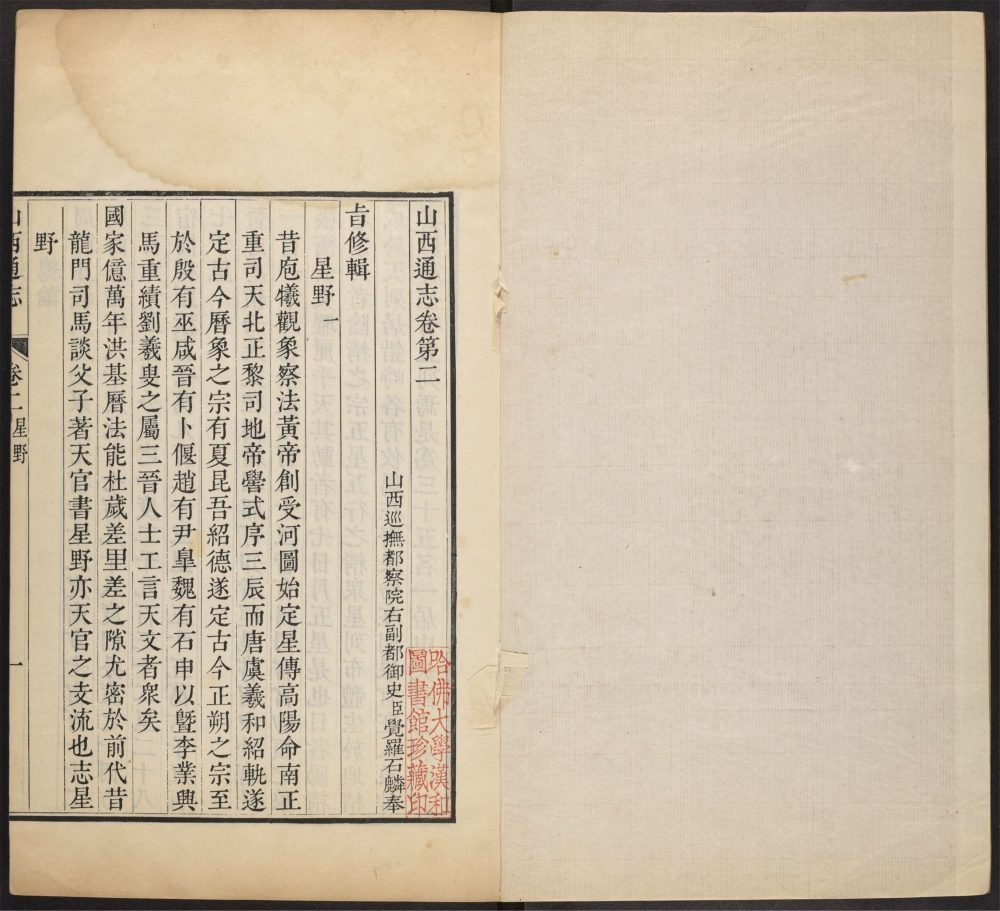 山西通志卷第二
山西巡撫都察院右副都御史臣覺羅石麟奉
旨修輯
星野一
昔庖犧觀象察法黃帝創受河圖始定星傳高陽命南正
重司天北正黎司地帝嚳式序三辰而唐虞羲和紹軌遂
定古今曆象之宗有夏昆吾紹德遂定古今正朔之宗至
於殷有巫咸晉有卜偃趙有尹臯魏有石申以曁李業興
馬重績劉羲叟之屬三晉人士工言天文者衆矣
國家億萬年洪基曆法能杜歲差里差之隙尤密於前代昔
龍門司馬談父子著天官書星野亦天官之支流也志星
野
山西通志
卷二星野
一
哈佛大學漢和
圖書館珍藏印